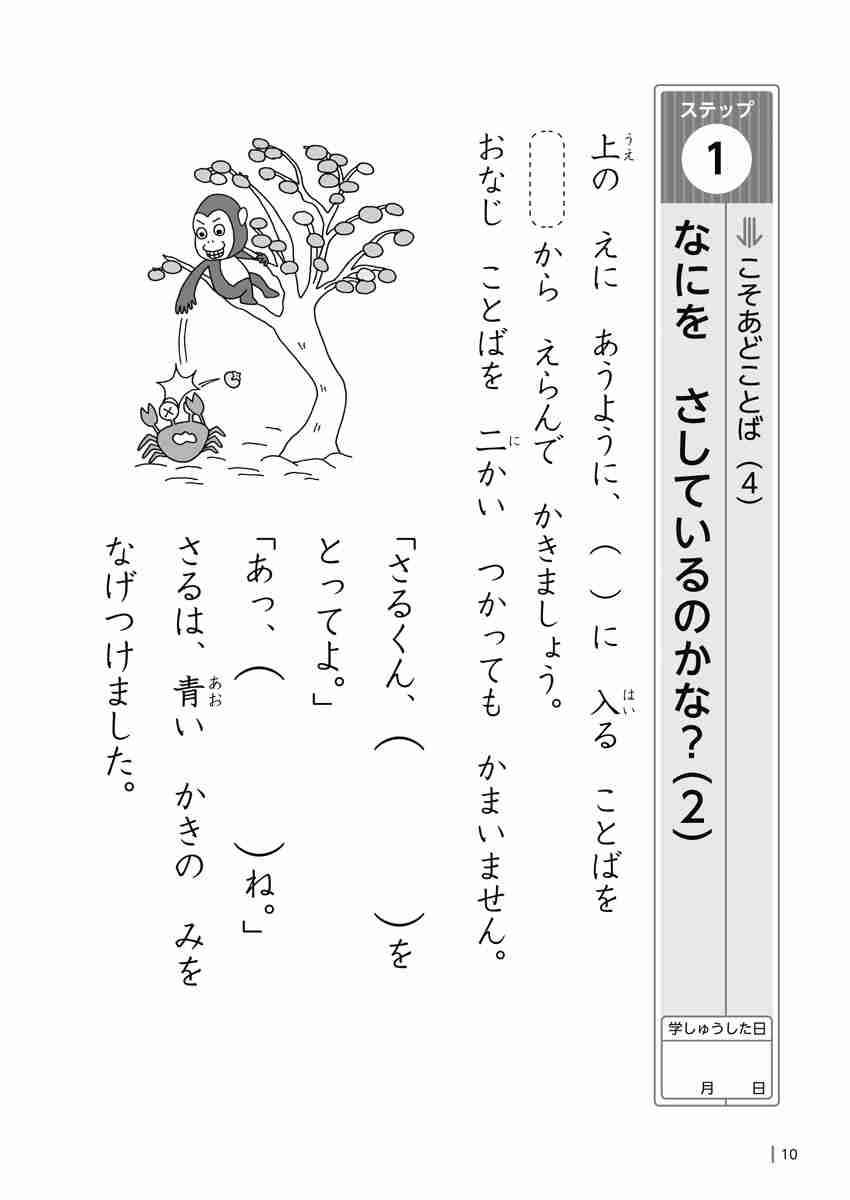 ステップ
1
こそあどことば（4）
なにを　さしているのかな？（2）
学しゅうした日
月　日
上の　えに　あうように、（　）に　入る　ことばを
うえ
はい
から　えらんで　かきましょう。
おなじ　ことばを　二かい　つかっても　かまいません。
に
「さるくん、（　　　）を
とってよ。」
「あっ、（　　　）ね。」
さるは、青い　かきの　みを
あお
なげつけました。
10